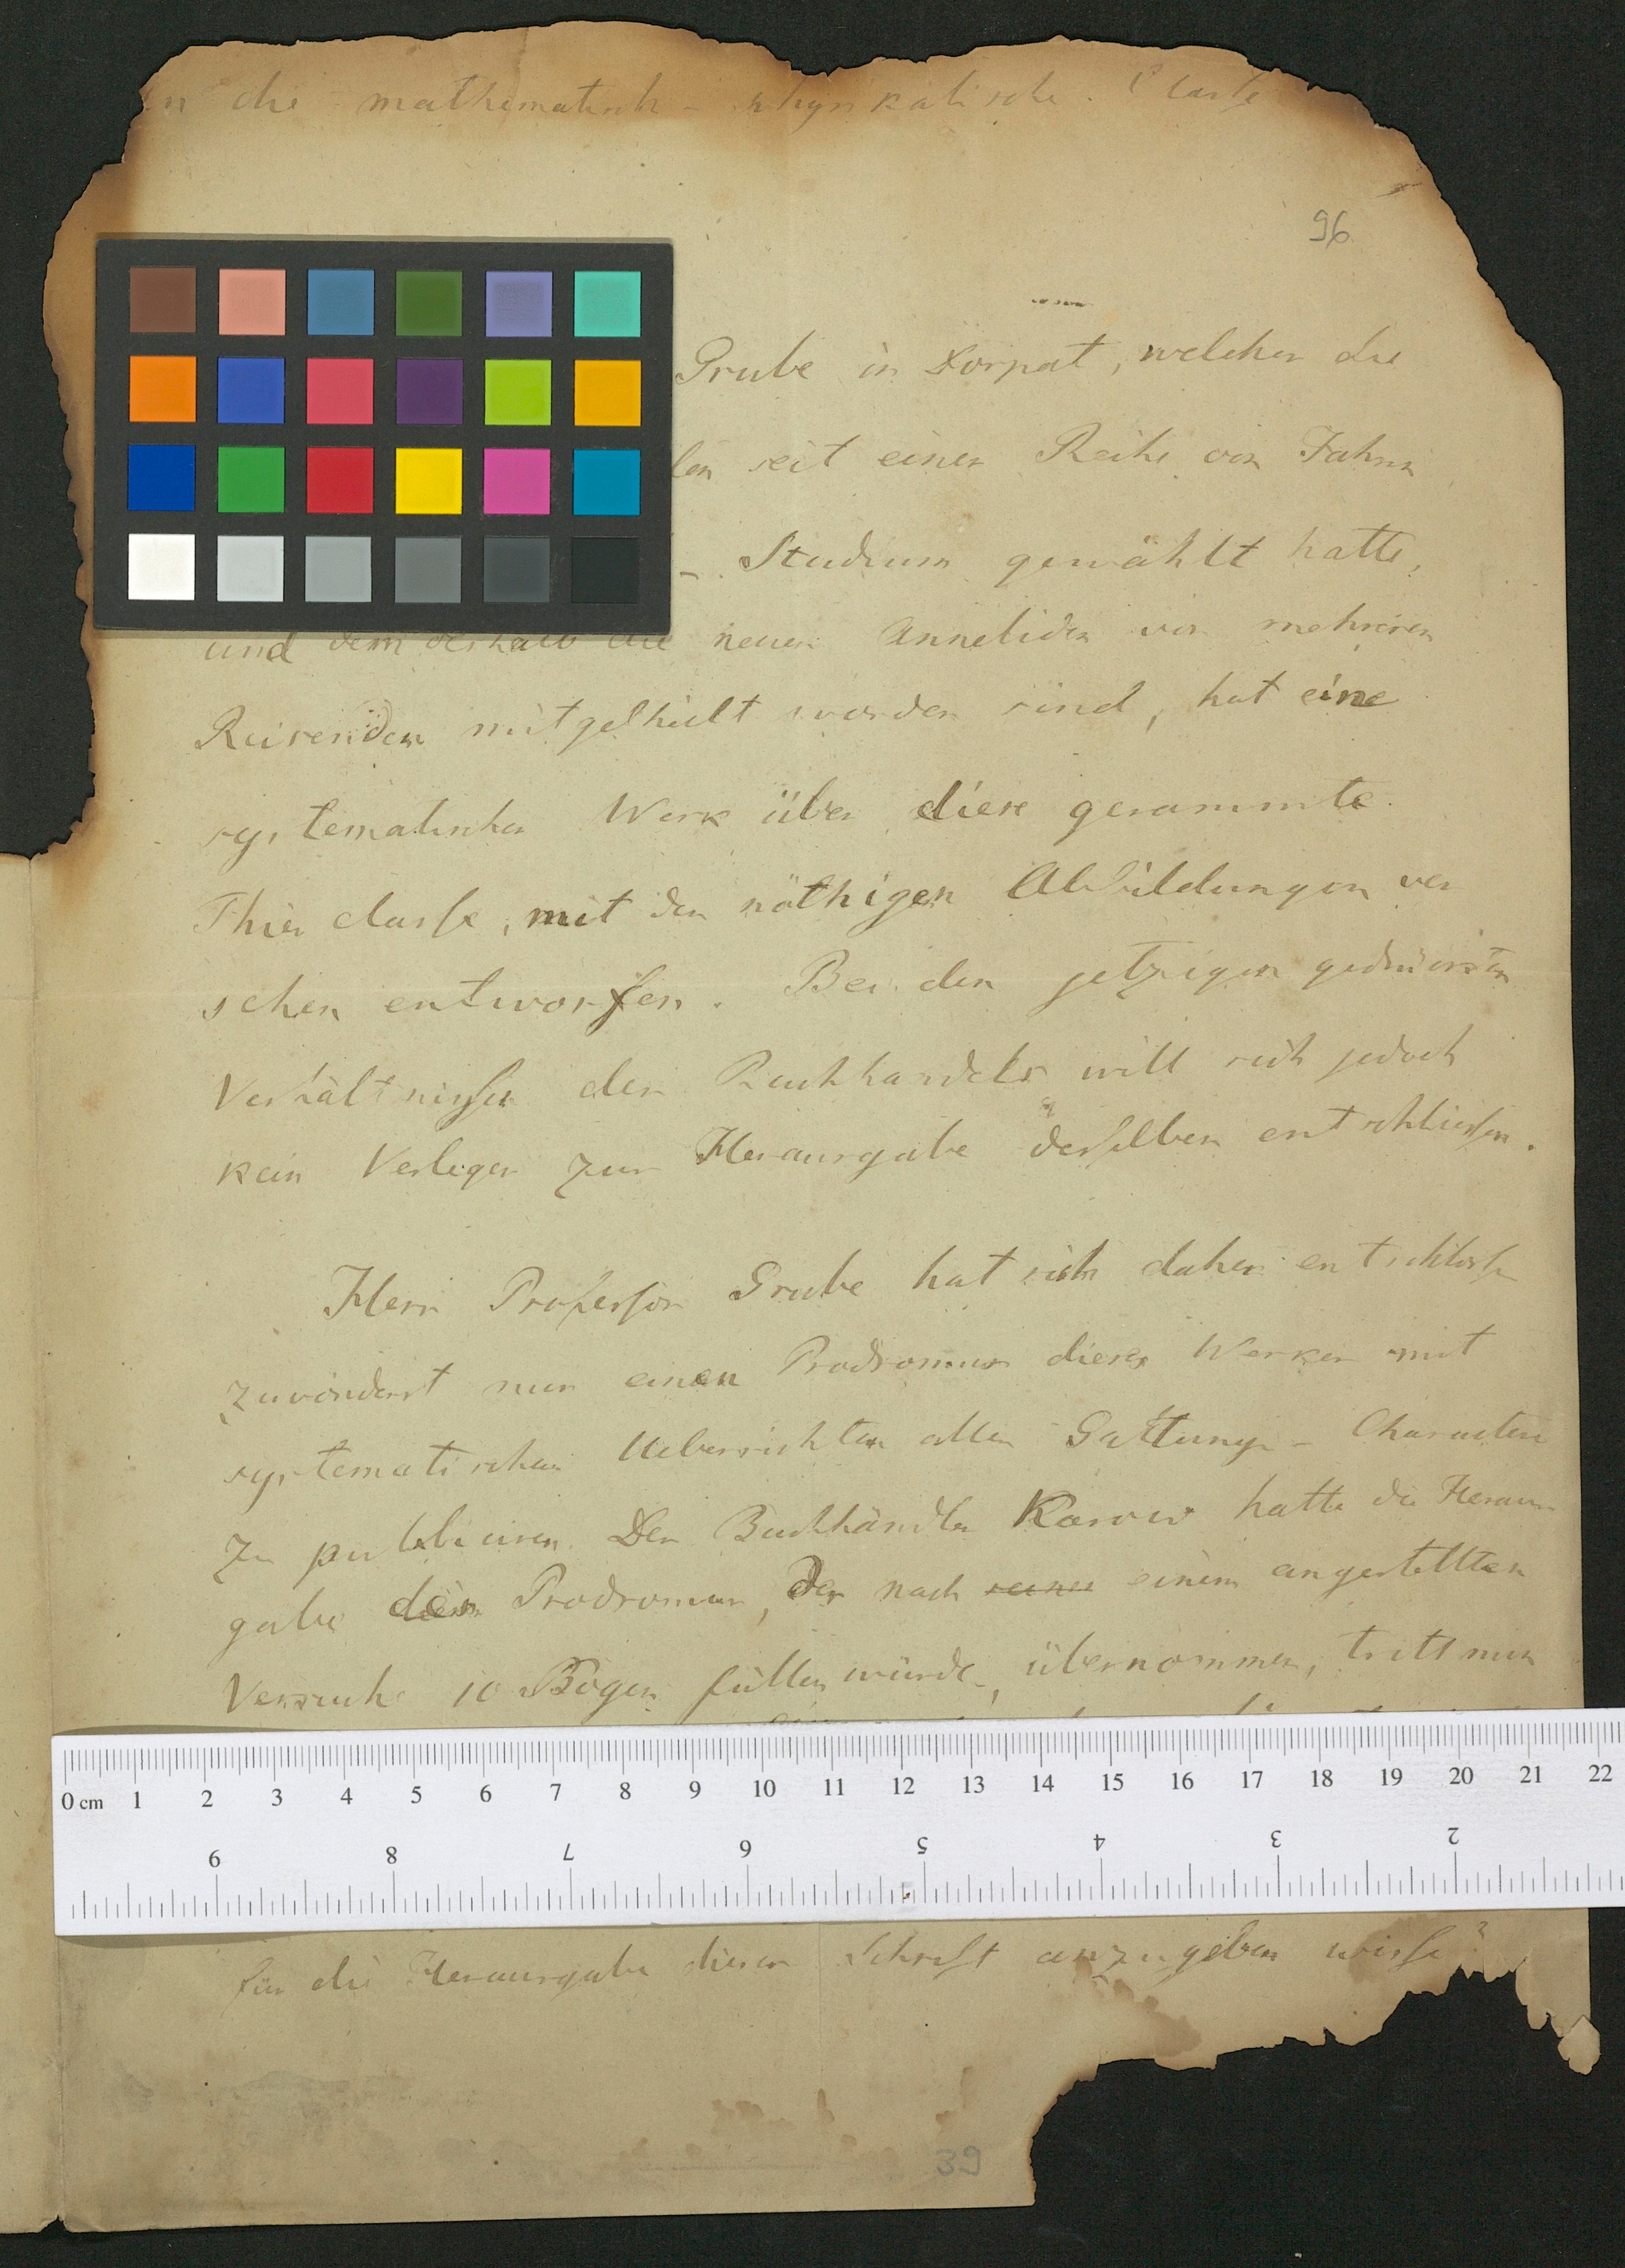 n die mathematisch-physikalische Classe
96
Grube in Dorpat, welcher die
len seit einer Reihe von Jahren
- Studium gewählt hatte,
und dem deshalb die neuen Anneliden von mehreren
Reisenden mitgetheilt worden sind, hat eine
systematisches Werk über diese gesammte
Thierclasse, mit den nöthigen Abbildungen ver
sehen entworfen. Bei den jetzigen gedrückten
Verhältnissen des Buchhandels will sich jedoch
kein Verleger zur Herausgabe desselben entschliessen.
Herr Professor Grube hat sich daher entschlossen
zuvörderst nur einen Prodromus dieses Werkes mit
systematischen Uebersichten aller Gattungs-Charactere
zu publiciren. Der Buchhändler Karow hatte die Heraus-
gabe des Prodromus, der nach einem angestellten
Versuche 10 Bogen füllen würde, übernommen, tritt nun
0 cm 1 2 3 4 5 6 7 8 9 10 11 12 13 14 15 16 17 18 19 20 21 22
9 8 7 6 5 4 3 2
für die Herausgabe dieser Schrift anzugeben wisse?
39